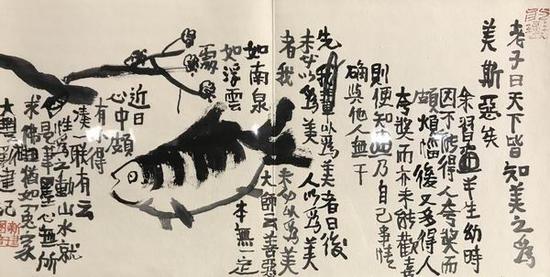 老子曰天下皆知美之為
美斯惡矣
余習畫半生幼時
因不能得人夸獎而
頗煩惱後又多得人
夸獎而亦未能歡喜
則便知畫乃自己事情
確與他人無干
先我輩以為美者日後
未必以為美人以為美
者我未必以為美
如南泉大師云善惡
如浮雲本無一定
處
近日
心中頗
有小得
一聯有云
性為之動山水就
是筆墨心無所
求佛猶如冤家
大建記